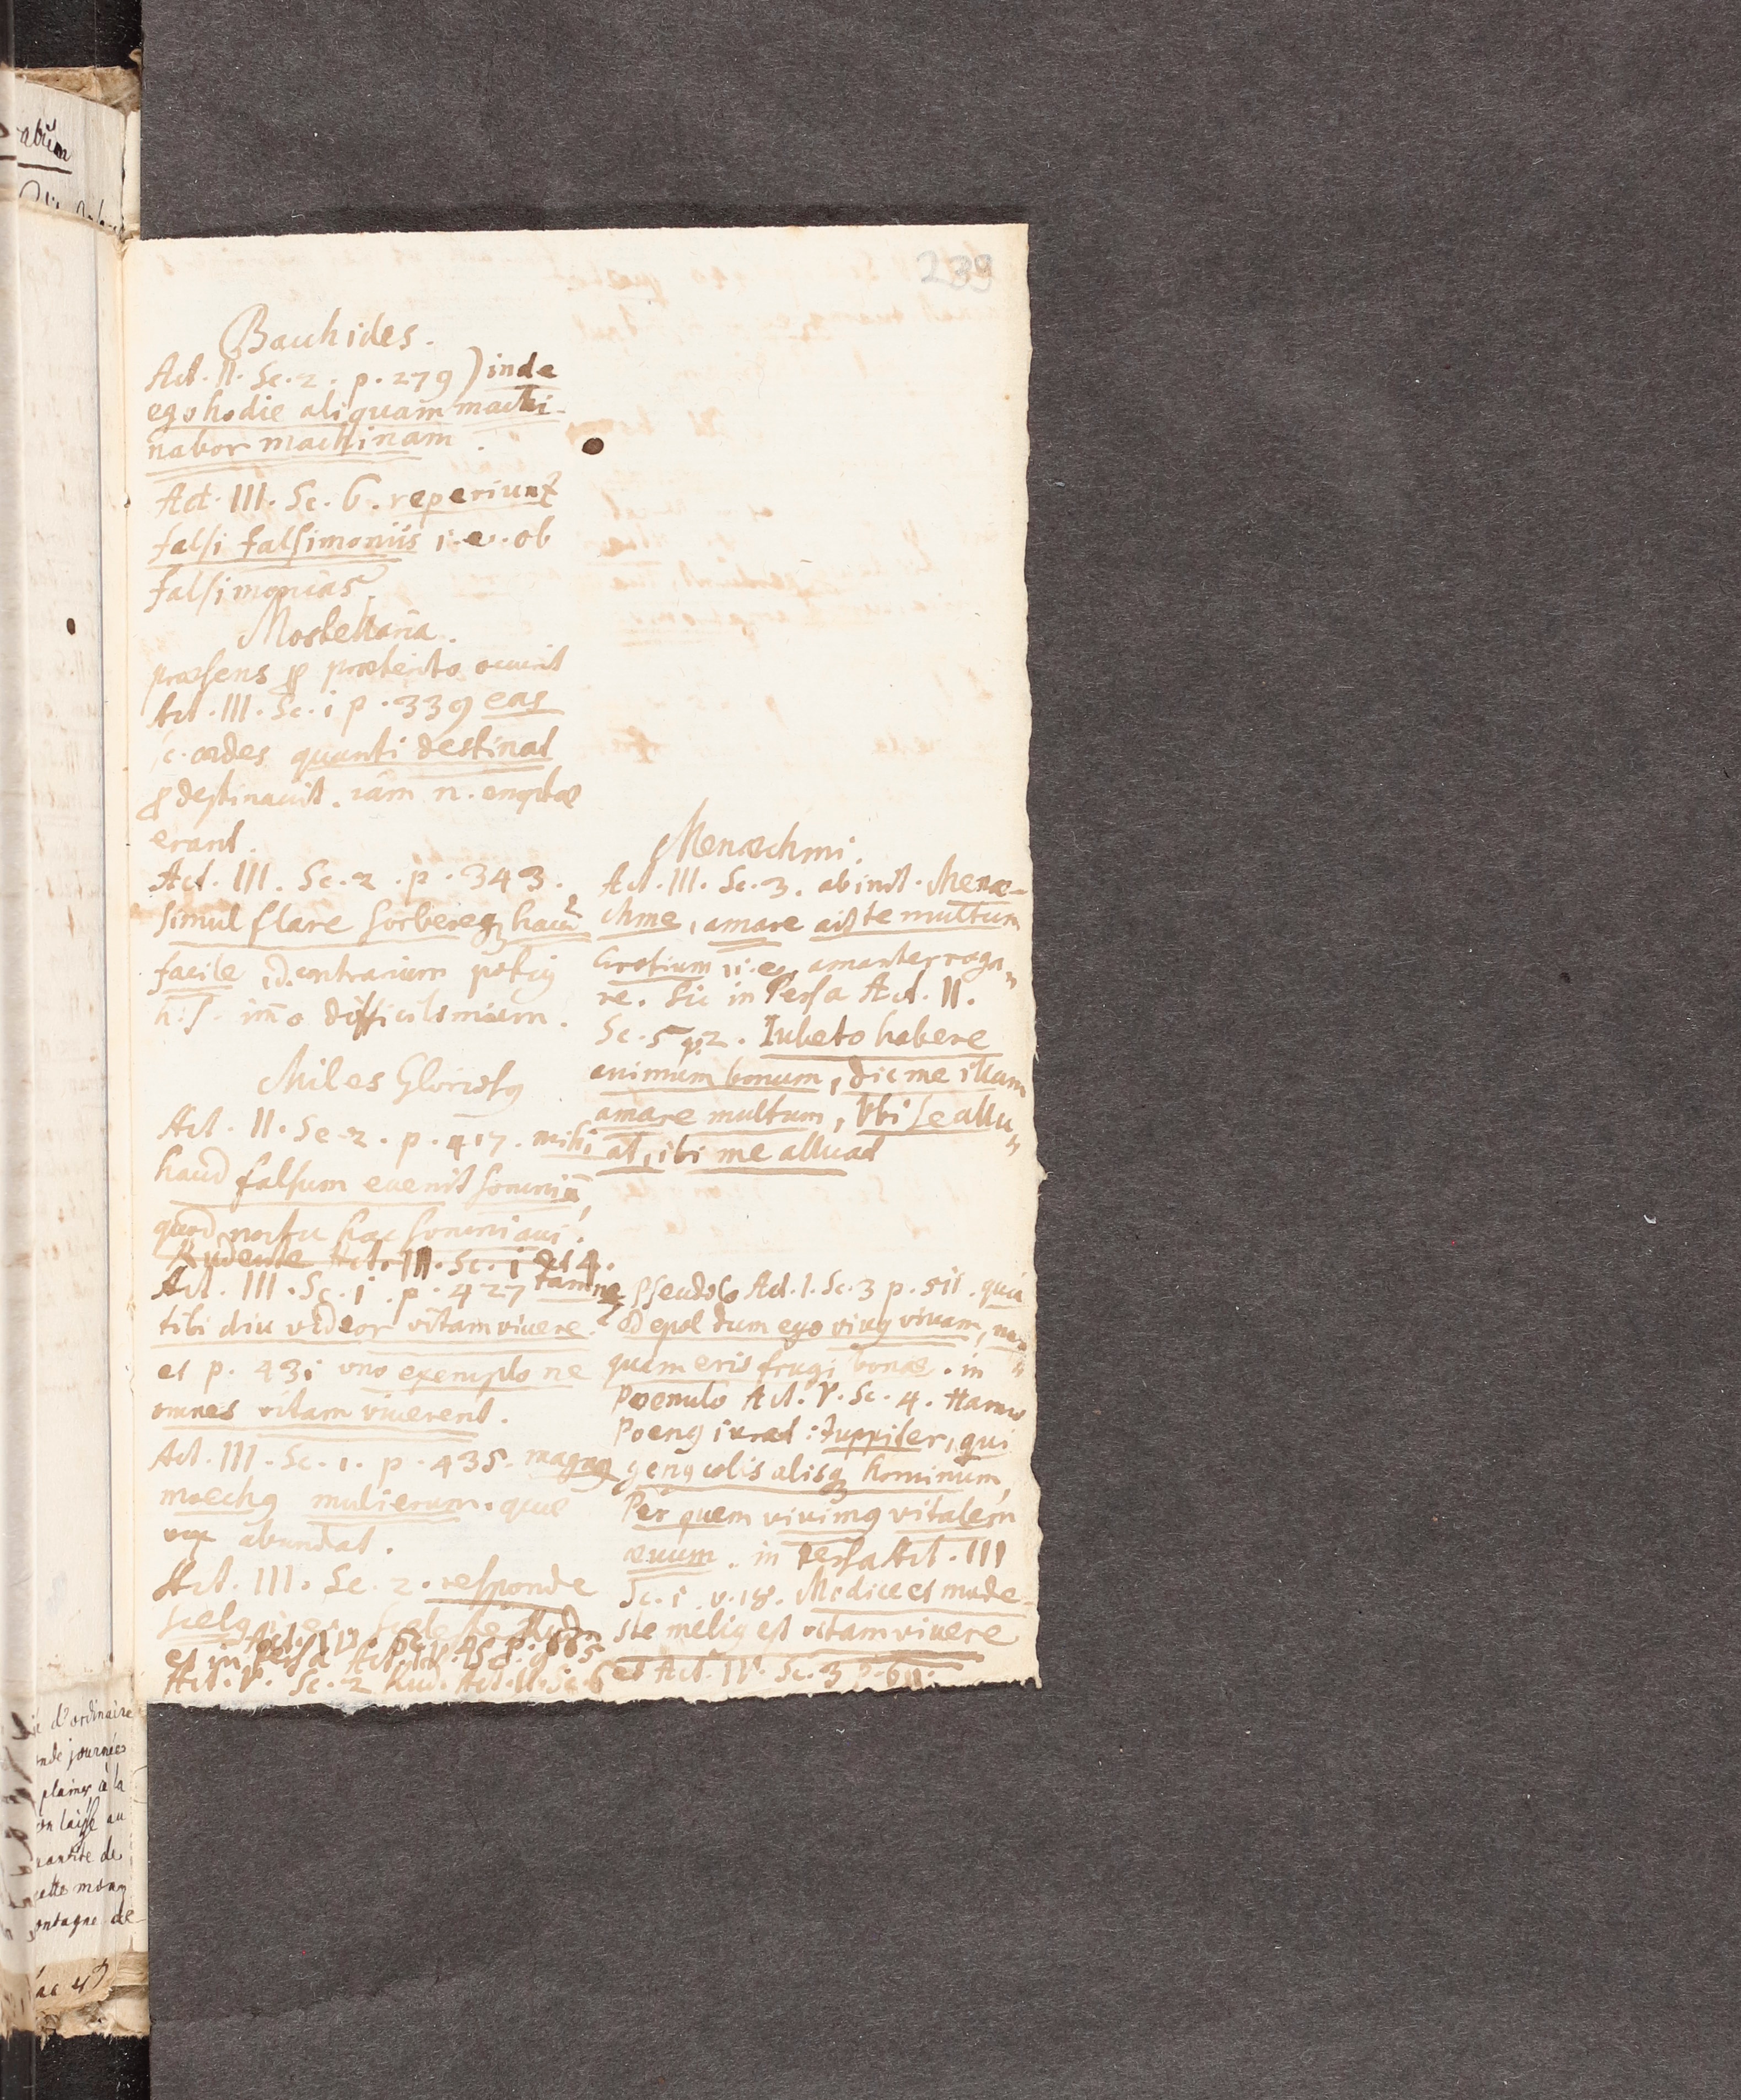 239
Bacchides.
Act. II. Sc. 2. p. 279) inde
ego hodie aliquam machi-
nabor machinam.
Act. III. Sc. 6. reperiunt
falsi falsimoniis i.e. ob
falsimonias.
Mostellaria.
præsens ꝓ præterito occurrit
Act. III. Sc. i p. 339 eas
sc. ædes quanti destinat
ꝓ destinauit. iam n. emptæ
erant.
Act. III. Sc. 2. p. 343.
simul flare sorbereqꝫ haud
facile id. contrarium potiꝰ
h. s. im̃o difficilimum.
Miles Gloriosꝰ
Act. II. Sc. 2. p. 417. mihi
haud falsum euenit somniũ,
quod noctu hac somniaui.
Rudente Act. III. Sc. i et 4.
Act. III. Sc. i. p. 427 tamne
tibi diu videor vitam viuere?
et p. 43i vno exemplo ne
omnes vitam viuerent.
Act. III. Sc. 1. p. 435. magnꝰ
moechꝰ mulierum. quæ
vox abundat.
Act. III. Sc. 2. responde
scelꝰ
et in Persa Act.
Act. V. Sc. 2 Rud. Act. II. Sc. 6
Menæchmi.
Act. III. Sc. 3. abinit. Menæ-
chme, amare ait te multum
Erotium, i.e. amanter roga-
re. Sic in Persa Act. II.
Sc. 5 v. 2. Iubeto habere
animum bonum, dic me illam
amare multum, Vbi se allu-
at, ibi me alluat
Pseudolo Act. I. Sc. 3 p. 511. quia
edepol dum ego viuꝰ viuam, nun-
quam eris frugi bonæ. in
Poenulo Act. V. Sc. 4. Hanno
Poenꝰ iurat: Iuppiter, qui
genꝰ colis alisqꝫ hominum,
Per quem viuimꝰ vitalem
æuum. in Persa Act. III
Sc. i. v. 18. Modice et mode-
ste meliꝰ est vitam viuere
et Act. IV. Sc. 3 p. 611.